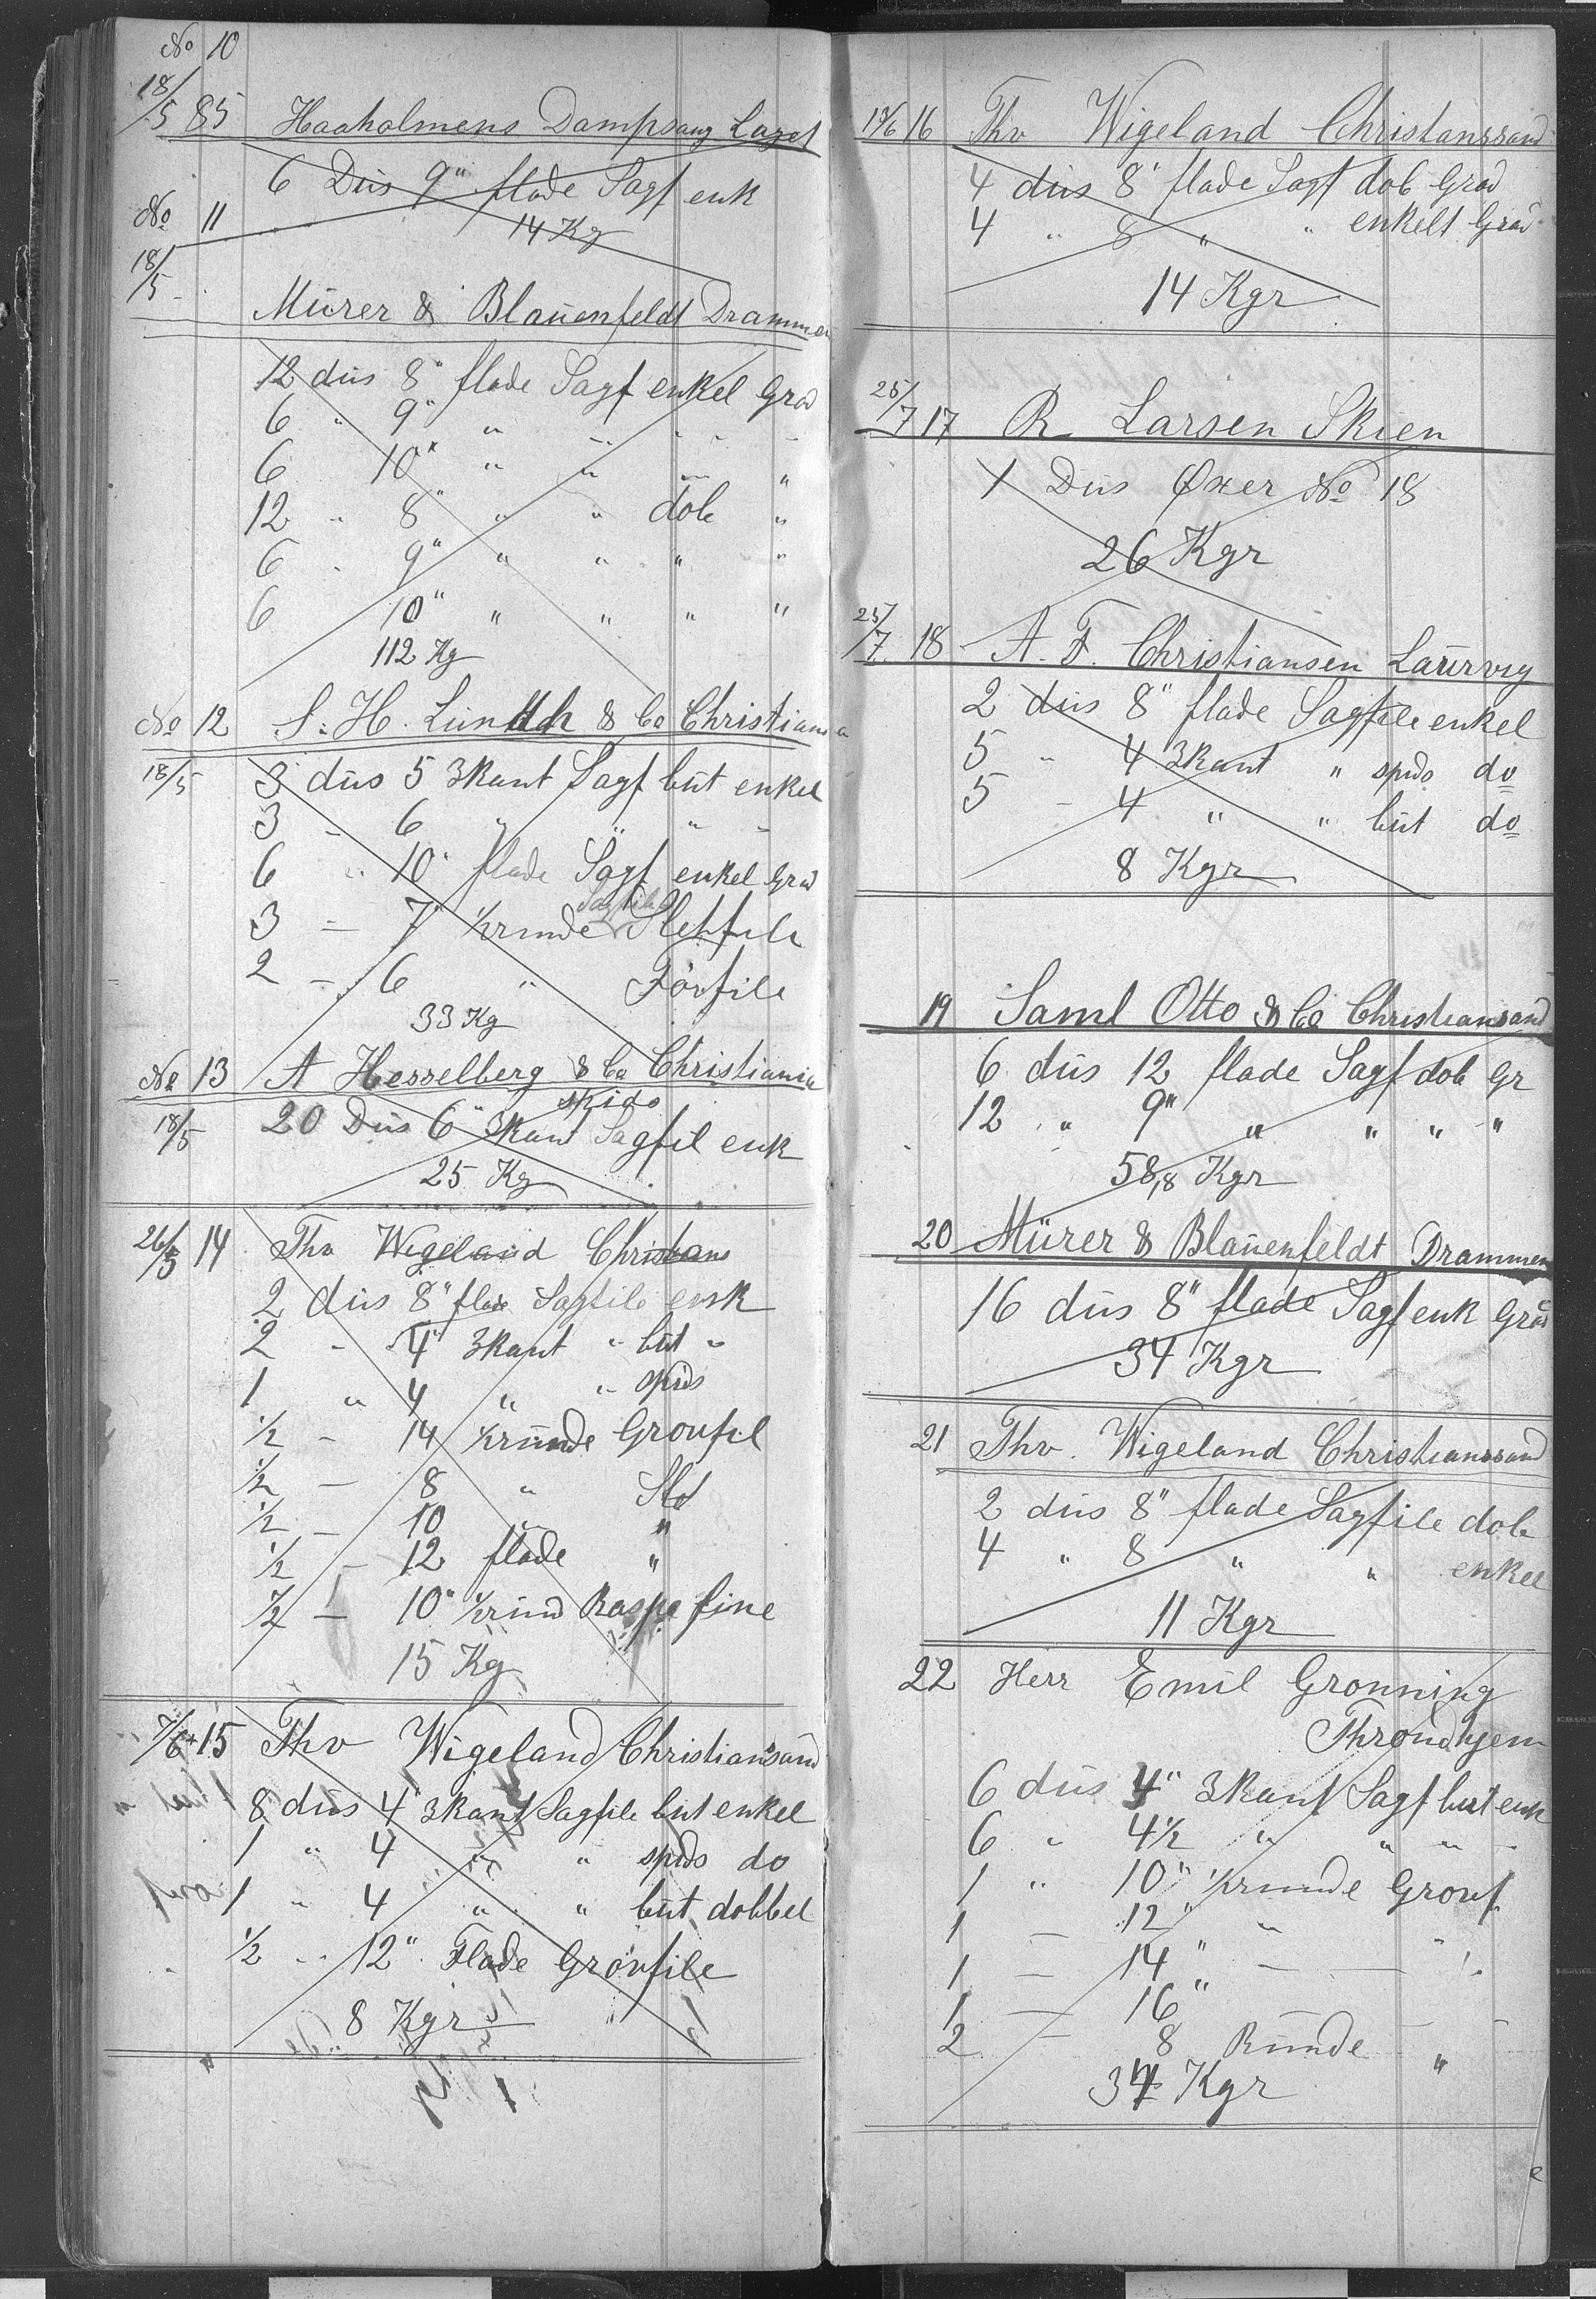 No 10
18/5 85 Haaholmens Dampsaug Laget
6 Düs 9" flade Sagf enk
14 Kg
No 11
18/5
Mürer & Blaüenfeldt Drammen
12 düs 8" flade Sagf enkel Grad
6 " 9" " " " "
6 10" " " " "
12 " 8" " " dob "
6 " 9" " " " "
6 10" " " " "
112 Kg
No 12 S. H. Lündh & Co Christiania
18/5 3 düs 5 3kant Sagf büt enkel
3 - 6 " " " "
6 " 10" flade Sagf enkel Grad
Sagfile
3 - 7" 1/2runde Sletfile
2 - 6 " Fórfile
33 Kg
No 13 A Hesselberg & Co Christiania
spids
18/5 20 Düs 6" 3kant Sagfil enk
25 Kg
26/5 14 Thv Wigeland Christians
2 düs 8" flade Sagfile enk
2 - 4" 3kant " büt "
1 " 4 " " spids
1/2 - 14 1/2ründe Groufil
1/2 - 8 " Slet
1/2 - 10 " "
1/2 - 12 flade "
1/2 - 10" 1/2ründ Raspe fine
15 Kg
7/6 15 Thv Wigeland Christiansand
8 düs 4" 3kant Sagfile büt enkel
1 " 4 " " spids do
1 " 4 " " büt dobbel
1/2 " 12" Flade Gróvfile
8 Kgr
19/6 16 Thv Wigeland Christianssand
4 düs 8" flade Sagf dob Grad
4 " 8 " " enkelt Grad
14 Kgr
25/7 17 R. Larsen Skien
1 Düs Øxer No 18
26 Kgr
25/7 18 A. F. Christiansen Laürvig
2 düs 8" flade Sagfile enkel
5 " 4 3kant " spids do
5 - 4 " " büt do
8 Kgr
19 Saml Otto & Co Christiansand
6 düs 12 flade Sagf dob Gr
12 " 9" " " " "
58,8 Kgr
20 Mürer & Blaüenfeldt Drammen
16 düs 8" flade Sagf enk Grad
34 Kgr
21 Thv. Wigeland Christianssand
2 düs 8" flade Sagfile dob
4 " 8 " " enkel
11 Kgr
22 Herr Emil Gronning
Throndhjem
6 düs 4" 3kant Sagf büt enk
6 " 4 1/2 " " " "
1 " 10" 1/2runde Grouf
1 - 12" "
1 - 14" - - "
1 - 16"
2 - 8 Ründe - "
34 Kgr